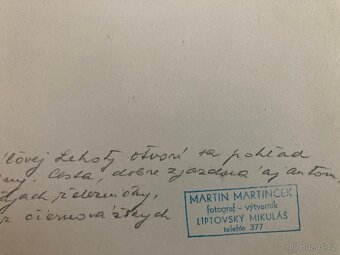 Lehoty otvorí sa pohľad
cesta, dobre zjazdná aj autom,
železničky,
z čiernovážskych
MARTIN MARTINČEK
fotograf - výtvarník
LIPTOVSKÝ MIKULÁŠ
telefón 377